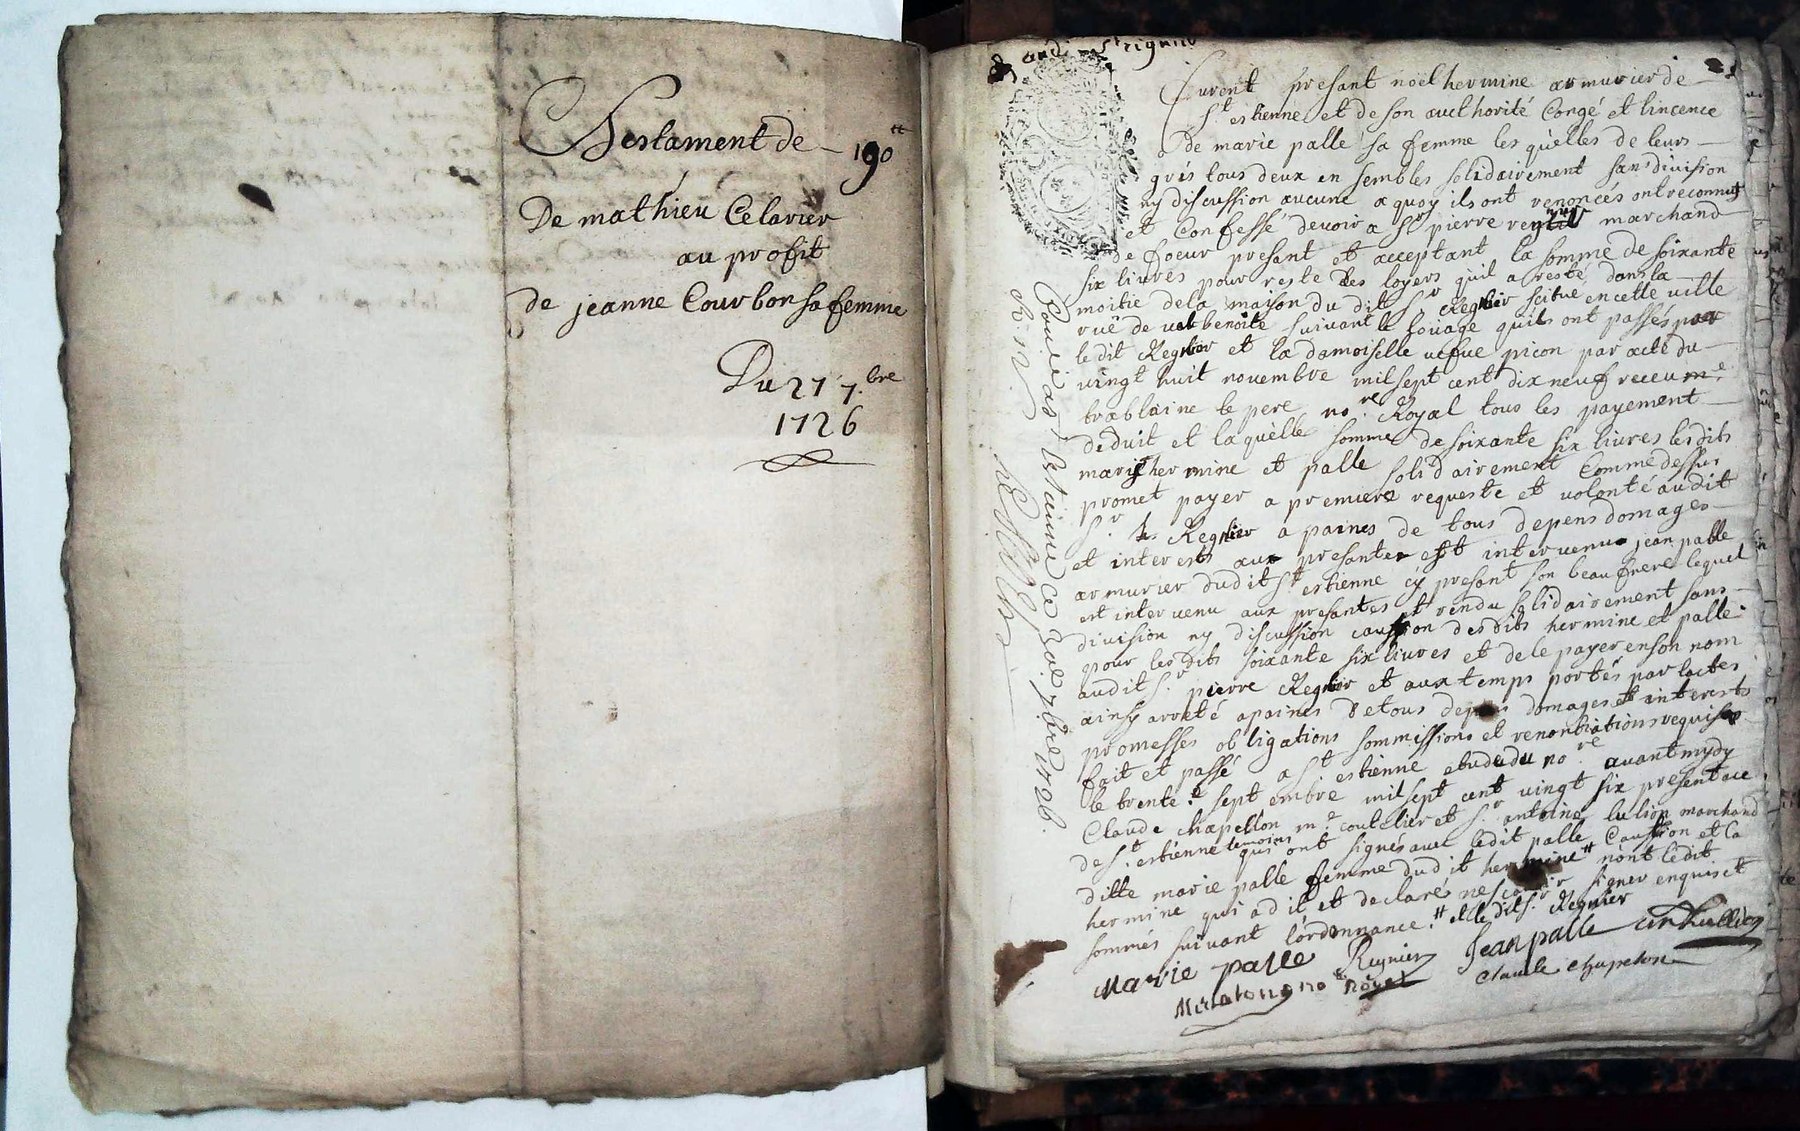 Testament de 190
De mathieu Celarier
au profit
de jeanne Courbon sa femme
Du 27 7.bre
1726
furent presant noel hermine armurier de
St estienne et de son aucthorité Congé et lincence
De marie palle sa femme les quèlles de leurs
grés tous deux en sembles solidairement sans division
ny discussion aucune a quoy ils ont renoncés ont reconnus
et Confessé devoir a Sr pierre regnier marchand
de foeur presant et acceptant la somme de soixante
six livres pour reste des loyers quil a resté dans la
moitie de la maison du dit Sr Regnier scitué en cette ville
ruë de valbenoite suivant le louage quils ont passés par
ledit Regnier et la damoiselle vefue picon par acte du
vingt huit novembre mil sept cent dix neuf receu me
trablaine le pere no.re Royal tous les payement
deduit et laquèlle somme de soixante six livres lesdits
mariés hermine et palle solidairement Comme dessus
promet payer a premiere requeste et volonté audit
Sr Regnier a paines de tous depens domages
et interests aux presantes est intervenu jean palle
armurier dudit St estienne cy presant son beaufrere lequel
est intervenu aux presantes et rendu solidairement sans
division ny discussion caution desdits hermine et palle
pour lesdits soixante six livres et de le payer en son nom
audit Sr pierre Regnier et aux temps portés par lactes
ainsy arreté a paines de tous depens domages et interests
promesses obligations sommissions et renontiations requises
fait et passé a St estienne etude du no.re avant mydy
le trente.e septembre mil sept cent vingt six present
Claude chapellon m.e coutelier et Sr antoine marchand
de St estienne temoins qui ont signés avec ledit palle Caution et la
ditte marie palle femme dudit hermine non ledit
hermine qui a dit et declaré ne scavoir signer enquis et
sommés suivant l'ordonnance et ledit Sr Regnier
Marie palle Regnier Jean palle
no.re Royal Claude chapelon